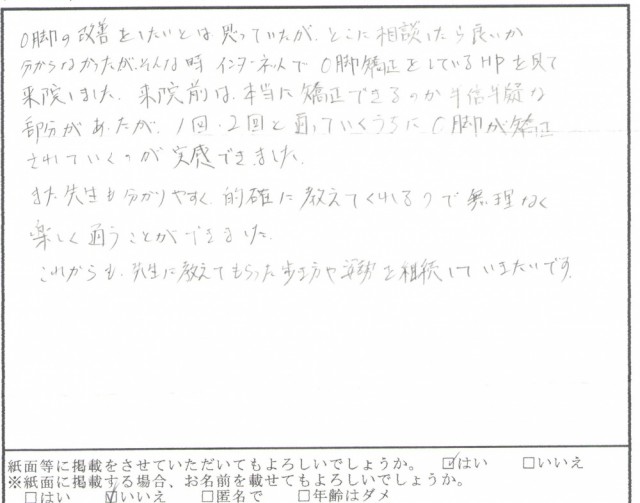 O脚の改善をしたいとは思っていたが、どこに相談したら良いか
分からなかったが、そんな時インターネットでO脚矯正をしているHPを見て
来院しました。来院前は、本当に矯正できるのか半信半疑な
部分があったが、1回・2回と通っていくうちにO脚が矯正
されていくのが実感できました。
また先生も分かりやすく、的確に教えてくれるので無理なく
楽しく通うことができました。
これからも、先生に教えてもらった歩き方や姿勢を継続していきたいです。
紙面等に掲載をさせていただいてもよろしいでしょうか。 ☑はい □いいえ
※紙面に掲載する場合、お名前を載せてもよろしいでしょうか。
□はい ☑いいえ □匿名で □年齢はダメ